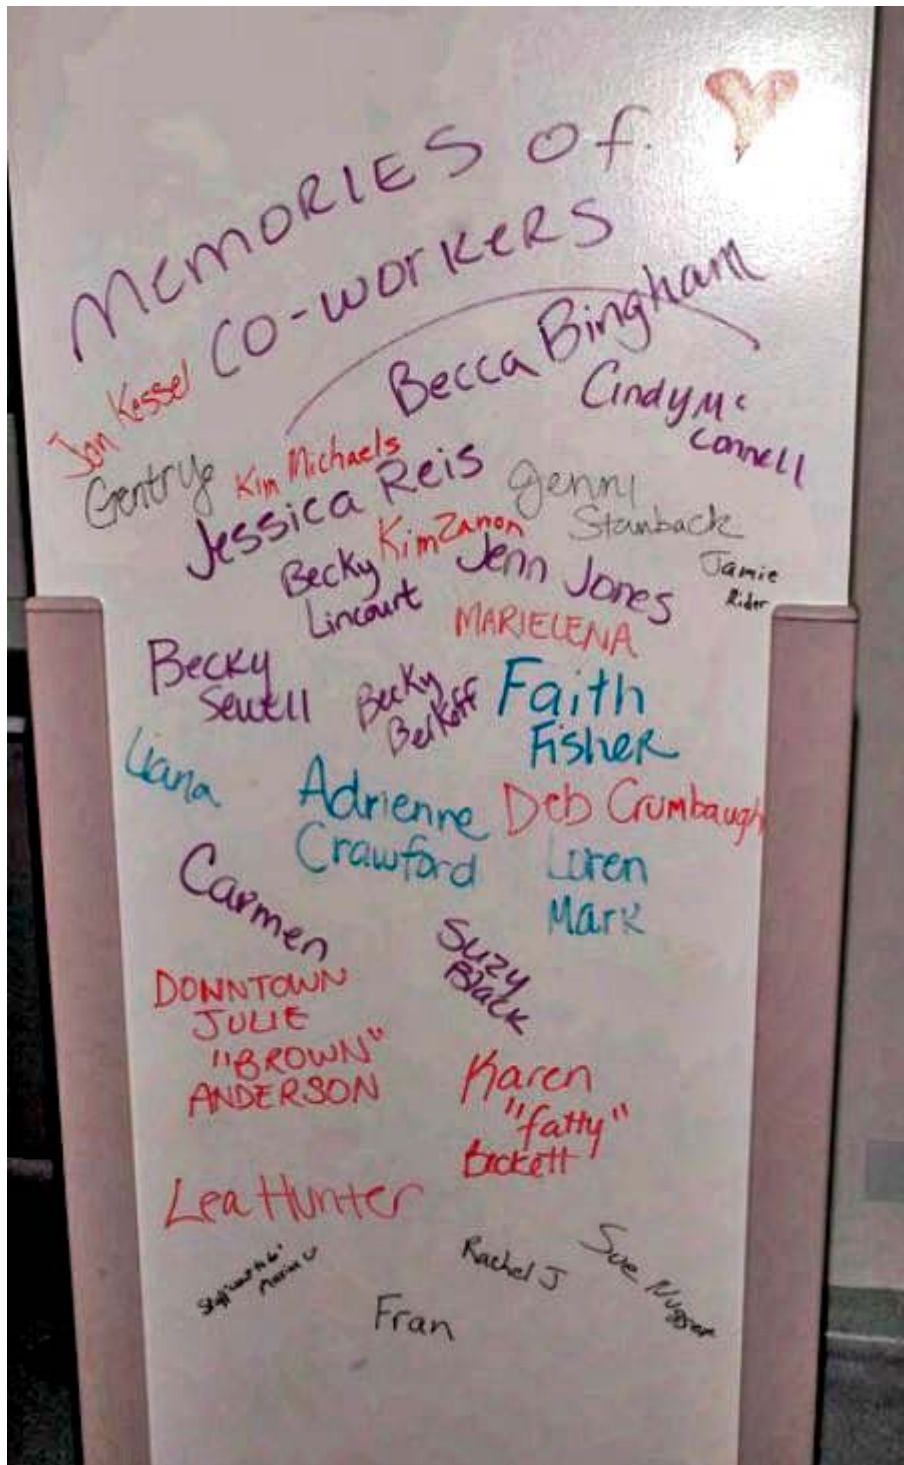 MEMORIES of
CO-WORKERS
Becca Bingham
Jon Kessel
Cindy Mc
Connell
Gentry
Kim Michaels
Jessica Reis
Jenni
Stanback
Kim Zanon
Becky
Lincourt
Jenn Jones
Jamie
Rider
MARIELENA
Becky
Sewell
Becky
Berkoff
Faith
Fisher
Liana
Adrienne
Crawford
Deb Crumbaugh
Loren
Mark
Carmen
Suzy
Black
DOWNTOWN
JULIE
"BROWN"
ANDERSON
Karen
"fatty"
Beckett
Lea Hunter
Rachel J
Sue Nugser
Fran